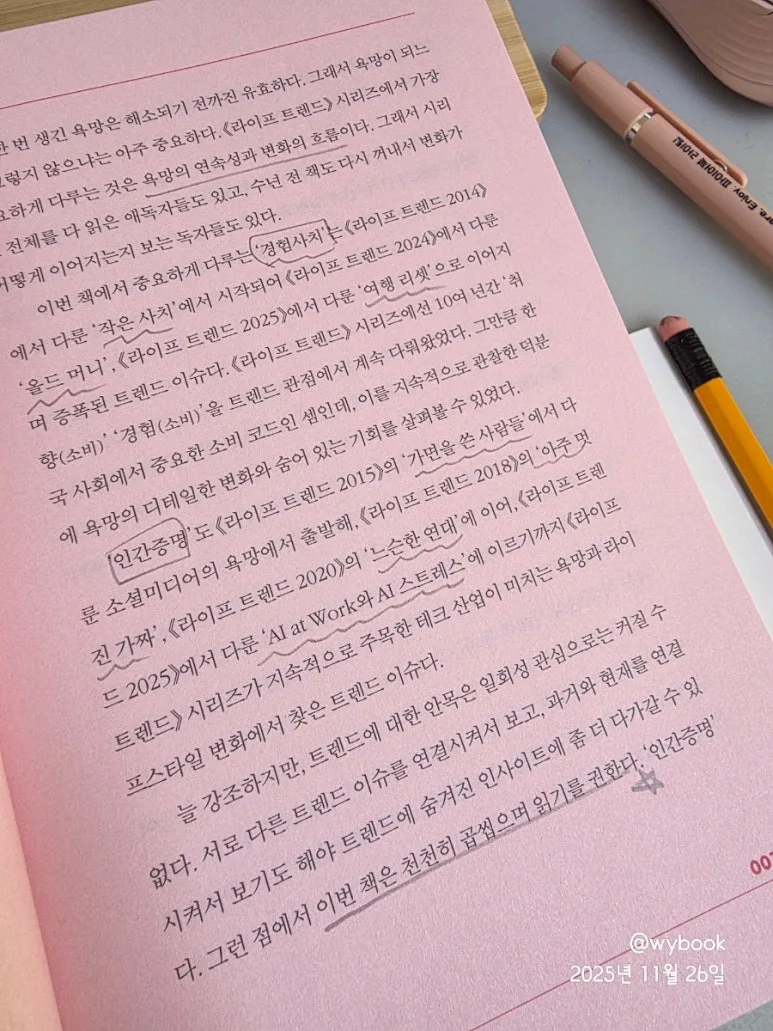 한 번 생긴 욕망은 해소되기 전까진 유효하다. 그래서 욕망이 되느
그렇지 않으냐는 아주 중요하다. 《라이프 트렌드》 시리즈에서 가장
요하게 다루는 것은 욕망의 연속성과 변화의 흐름이다. 그래서 시리
전체를 다 읽은 애독자들도 있고, 수년 전 책도 다시 꺼내서 변화가
어떻게 이어지는지 보는 독자들도 있다.
이번 책에서 중요하게 다루는 '경험사치'는 《라이프 트렌드 2014》
에서 다룬 '작은 사치'에서 시작되어 《라이프 트렌드 2024》에서 다룬
'올드 머니', 《라이프 트렌드 2025》에서 다룬 '여행 리셋'으로 이어지
며 증폭된 트렌드 이슈다. 《라이프 트렌드》 시리즈에선 10여 년간 '취
향(소비)' '경험(소비)'을 트렌드 관점에서 계속 다뤄왔었다. 그만큼 한
국 사회에서 중요한 소비 코드인 셈인데, 이를 지속적으로 관찰한 덕분
에 욕망의 디테일한 변화와 숨어 있는 기회를 살펴볼 수 있었다.
'인간증명'도 《라이프 트렌드 2015》의 '가면을 쓴 사람들'에서 다
룬 소셜미디어의 욕망에서 출발해, 《라이프 트렌드 2018》의 '아주 멋
진 가짜', 《라이프 트렌드 2020》의 '느슨한 연대'에 이어, 《라이프 트렌
드 2025》에서 다룬 'AI at Work와 AI 스트레스'에 이르기까지 《라이프
트렌드》 시리즈가 지속적으로 주목한 테크 산업이 미치는 욕망과 라이
프스타일 변화에서 찾은 트렌드 이슈다.
늘 강조하지만, 트렌드에 대한 안목은 일회성 관심으로는 커질 수
없다. 서로 다른 트렌드 이슈를 연결시켜서 보고, 과거와 현재를 연결
시켜서 보기도 해야 트렌드에 숨겨진 인사이트에 좀 더 다가갈 수 있
다. 그런 점에서 이번 책은 천천히 곱씹으며 읽기를 권한다. '인간증명'
007
Enjoy 파이아케 라이팅
@wybook
2025년 11월 26일